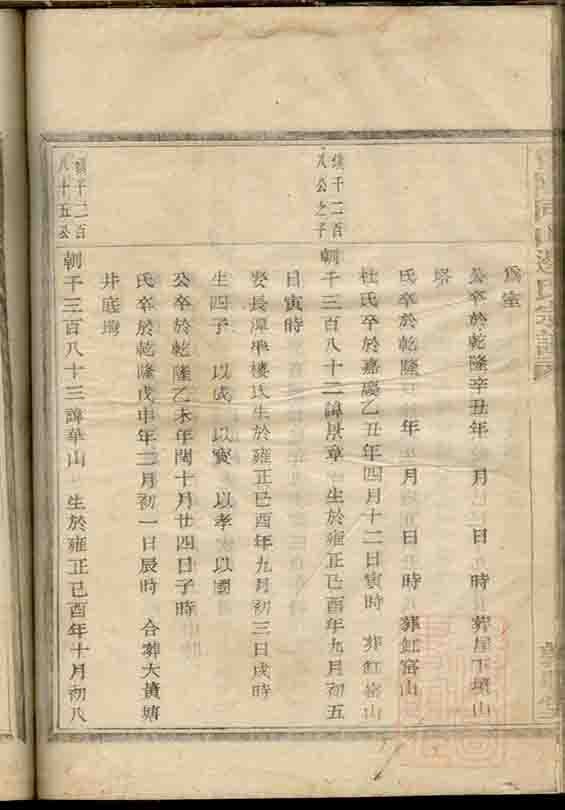 為室
公卒於乾隆辛丑年 月 日 時 葬屋下墈山
塔
氏卒於乾隆 年 月 日 時 葬缸窑山
杜氏卒於嘉慶乙丑年四月十二日寅時 葬缸窑山
續千二百
八公之子
朝千三百八十二諱景章 生於雍正己酉年九月初五
日寅時
娶長潭畈樓氏生於雍正己酉年九月初三日戌時
生四子 以成 以實 以孝 以國
公卒於乾隆乙未年閏十月廿四日子時
氏卒於乾隆戊申年二月初一日辰時 合葬大黃塘
井底塆
續千二百
八十五公
朝千三百八十三諱華山 生於雍正己酉年十月初八
氏宗譜